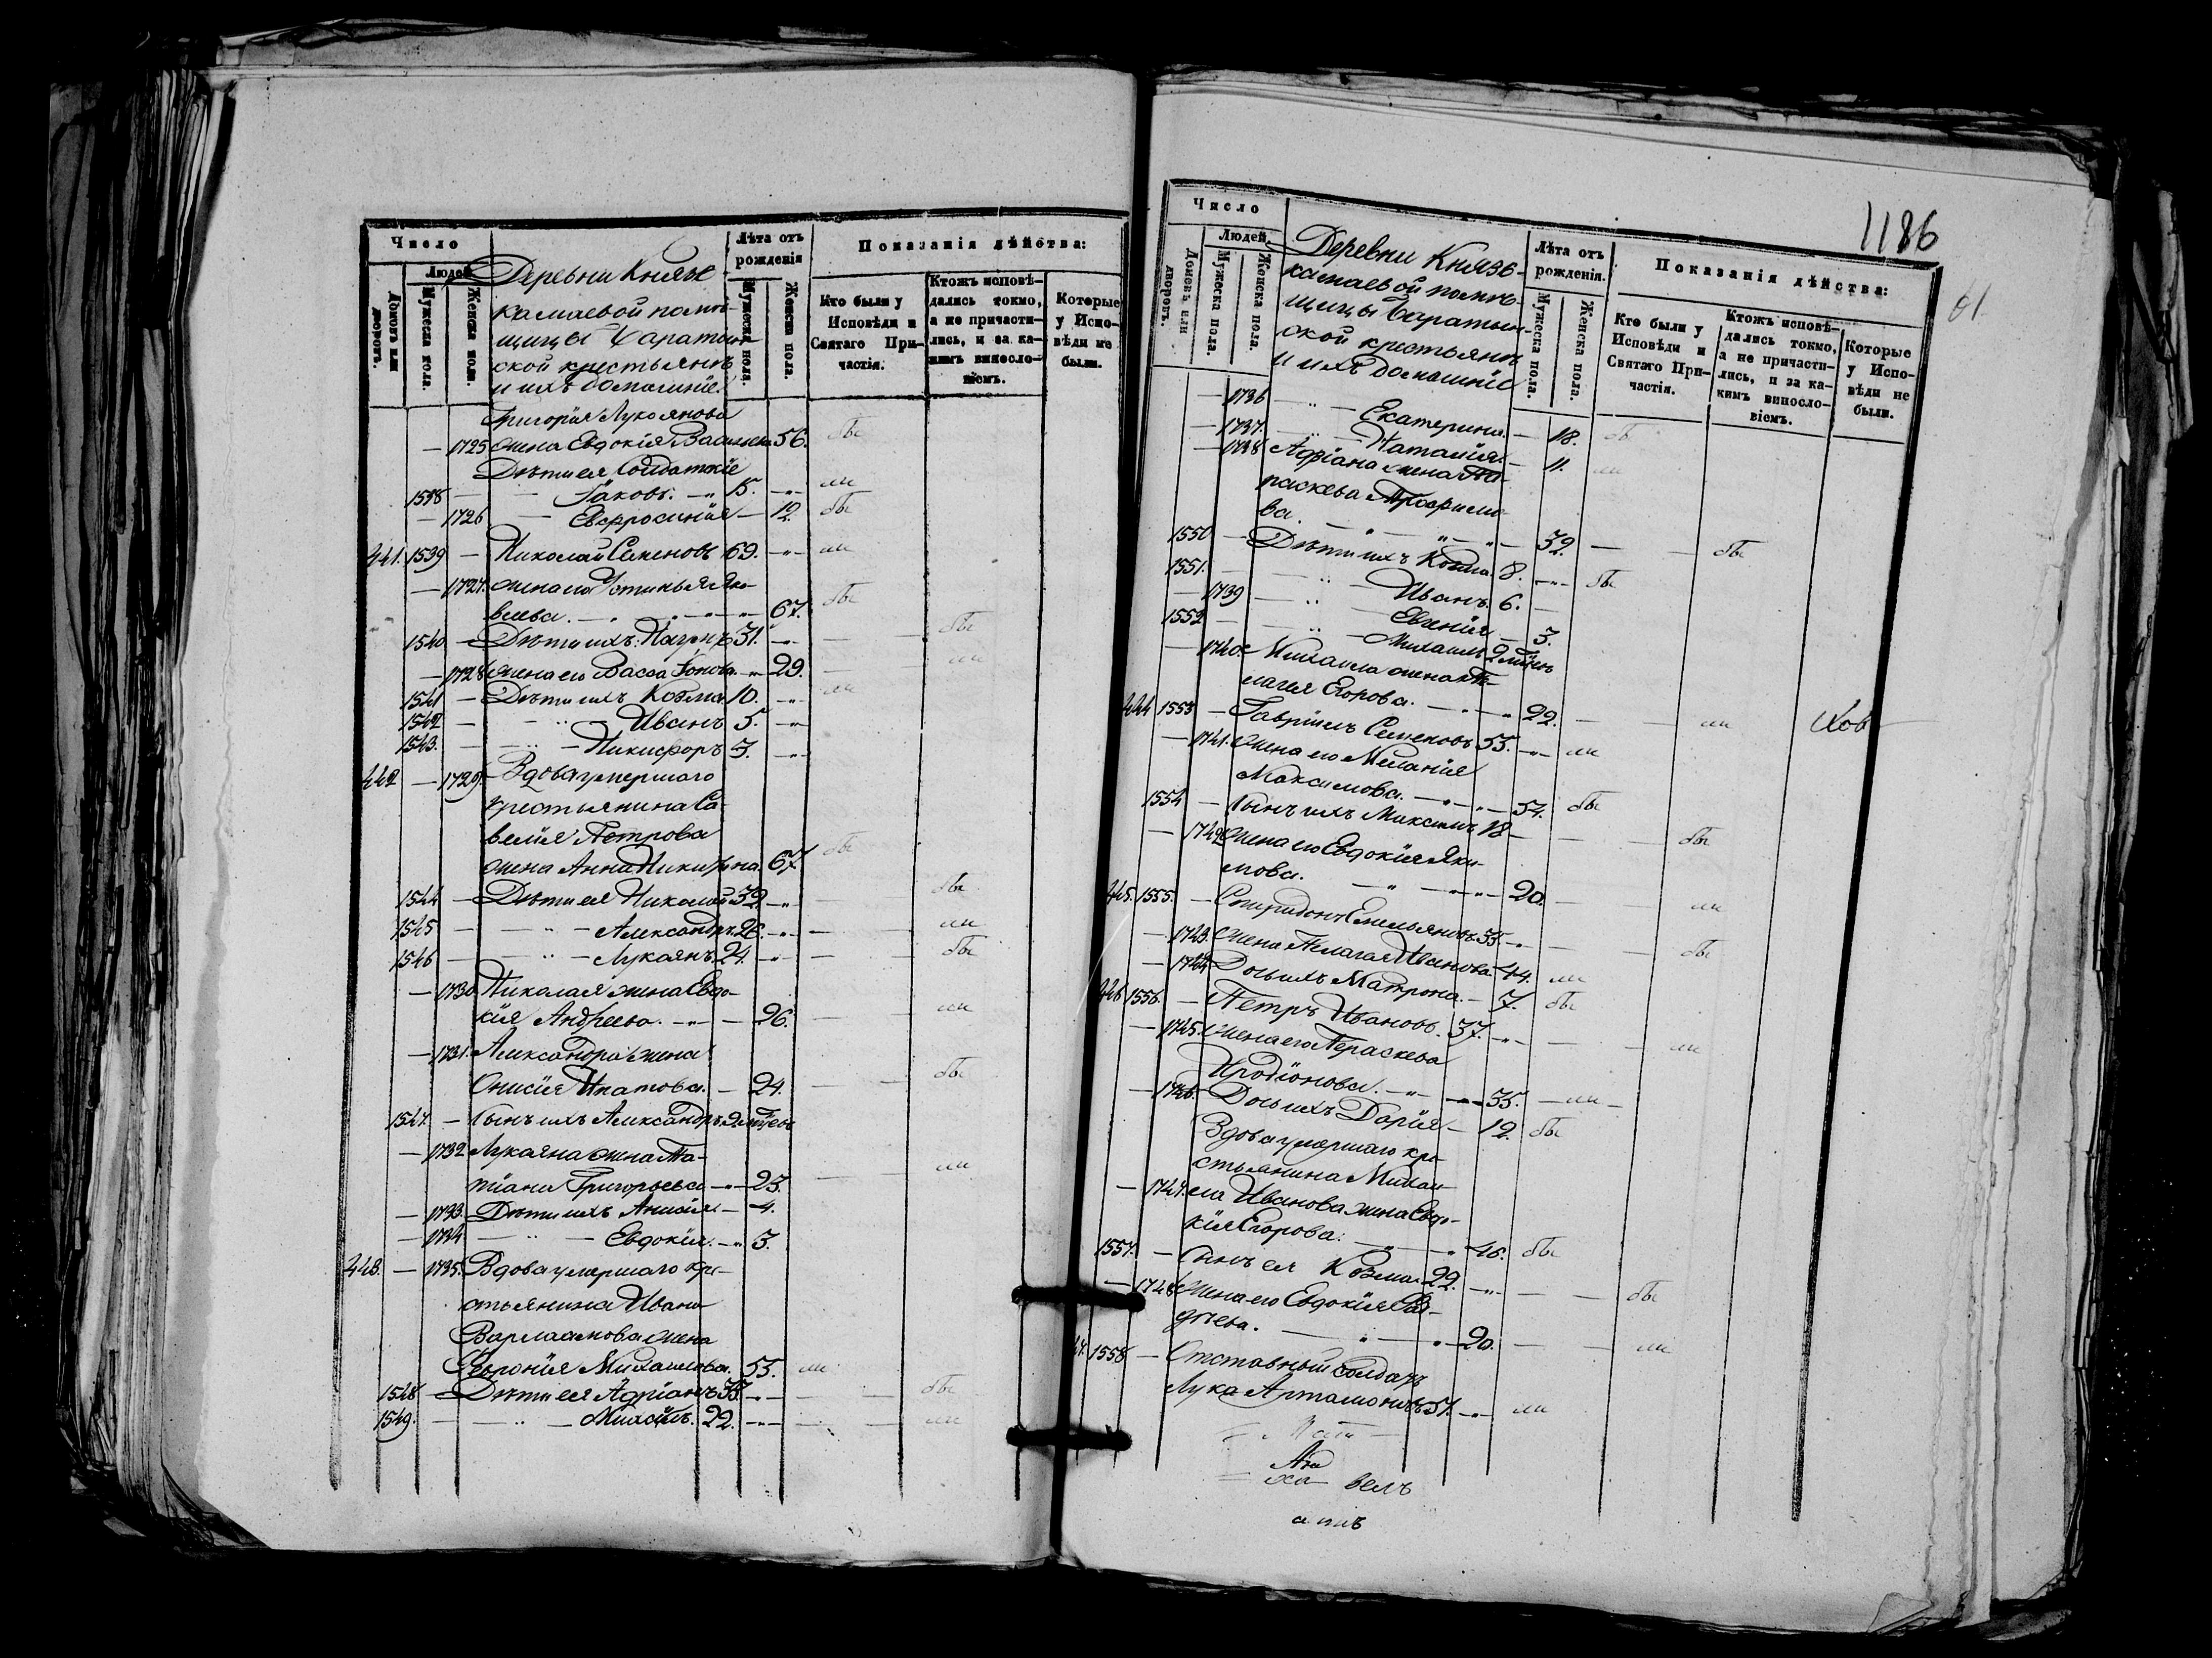 Число
Людей
Домовъ или дворовъ.
Мужеска пола.
Женска пола.
Деревни Князь
камаевой помѣ-
щицы Баратын-
ской крестьянѣ
и ихъ домашніе.
Лѣта отъ рожденія
Мужеска пола.
Женска пола.
Показанія дѣйства:
Кто были у Исповѣди и Святаго При-частія.
Ктожъ исповѣ-дались токмо, а не причасти-лись, и за ка-кимъ виносло-віемъ.
Которые у Испо-вѣди не были.
Григорія Лукоянова
— 1725 жена Евдокія Васильева 56. бы
Дѣти ея Солдатскіе
1538 — Іаковъ. — 15. — ли
— 1726 — Евфросинія — 12. бы
441. 1539 — Николай Семеновъ 69. — ли
— 1727. жена его Устинья Яко-
влева. — 67. бы
1540 — Дѣти ихъ: Назаръ 31. — бы
— 1728 жена его Васса — 29. — ли
1541 — Дѣти ихъ Козма 10. — ли
1542 — Иванъ 5. —
1543. — Никифоръ 3. —
442 — 1729. Вдова умершаго
крестьянина Са-
велія Петрова
жена Анна 67 бы
1544 — Дѣти ея Николай 32. — бы
1545 — Александръ 26. — ли
1546 — Лукоянъ 24. — бы
— 1730 Николая жена Евдо-
кія Андреева. — 26. ли
— 1731. Александра жена
Онисія Ипатова. — 24. бы
1547. — Сынъ ихъ Александръ
— 1732 Лукояна жена Та-
тіана Григорьева — 23. ли
— 1733. Дѣти ихъ Анисія — 4.
— 1734 — Евдокія. — 3.
443. — 1735. Вдова умершаго кре-
стьянина Ивана
Варлаамова жена
Февронія Михаилова. 53. ли
1548 — Дѣти ея Адріанъ 33. — бы
1549. — Михаилъ. 22. — ли
1186
61
Число
Людей.
Домовъ или дворовъ.
Мужеска пола.
Женска пола.
Деревни Князь-
камаевой помѣ-
щицы Баратын-
ской крестьянѣ
и ихъ домашніе
Лѣта отъ рожденія.
Мужеска пола.
Женска пола.
Показанія дѣйства:
Кто были у Исповѣди и Святаго При-частія.
Ктожъ исповѣ-дались токмо, а не причасти-лись, и за ка-кимъ виносло-віемъ.
Которые у Испо-вѣди не были.
— 1736 — Екатерина. — 18. бы
— 1737. — Наталія. — 11. ли
— 1738 Адріана жена Па-
раскева Трофимо-
ва. — 32. — бы
1550 — Дѣти ихъ Козма. 8. — бы
1551. — Иванъ. 6. —
— 1739 — Евгенія — 3.
1552 — Михаилъ
— 1740 Михаила жена Пе-
лагея Егорова. — 22. — ли
444 1553 — Гавріилъ Семеновъ 55. — ли
— 1741. жена его Меланія
Максимова. — 54. бы
1554 — Сынъ ихъ Максимъ 18 — бы
— 1742 жена его Евдокія Яки-
мова. — 20. ли
445. 1555. — Спиридонъ Емельяновъ 55 — бы
— 1743. жена Пелагея Иванова. 44. ли
— 1744 Дочь ихъ Матрона. — 7. бы
446 1556. — Петръ Ивановъ. 37. — ли
— 1745. жена его Параскева
Иродіонова. — 35. — ли
— 1746. Дочь ихъ Дарія — 12. бы
Вдова умершаго кре-
стьянина Михаи-
— 1747. ла Иванова жена Евдо-
кія Егорова. — 46. бы
1557. — Сынъ ея Козма 22. — бы
— 1748 жена его Евдокія
— 20. — ли
1558 — Отставный солдатъ
Лука Артамоновъ 57. — ли